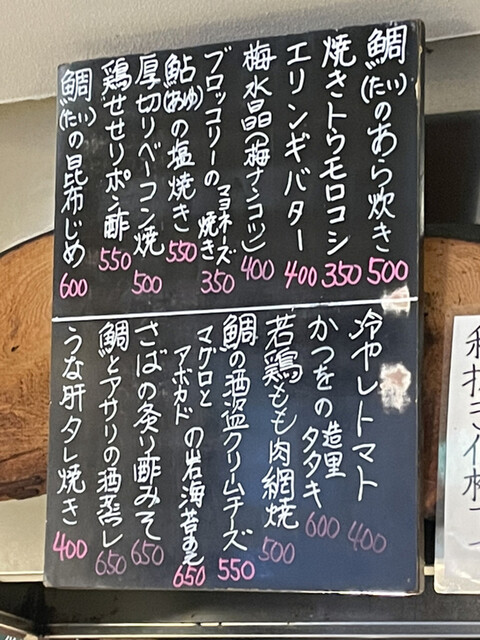 鯛(たい)のあら炊き 500
焼きトウモロコシ 350
エリンギバター 400
梅水晶(梅ナンコツ) 400
ブロッコリーのマヨネーズ焼き 350
鮎(あゆ)の塩焼き 550
厚切りベーコン焼 500
鶏せせりポン酢 550
鯛(たい)の昆布じめ 600
冷やしトマト 400
かつをの造里 タタキ 600
若鶏もも肉網焼 500
鯛の酒盗クリームチーズ 550
マグロとアボカドの岩海苔あえ 650
さばの炙り酢みそ 650
鯛とアサリの酒蒸し 650
うな肝タレ焼き 400